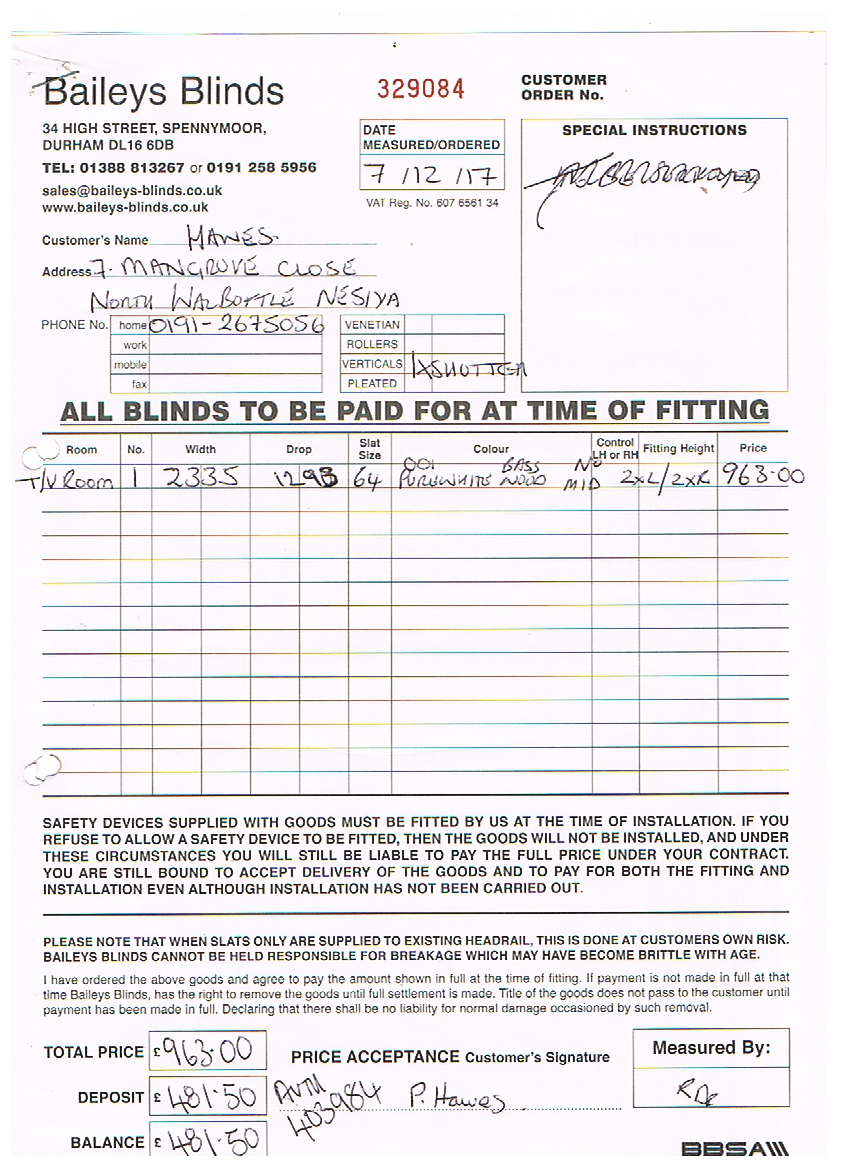 Baileys Blinds
34 HIGH STREET, SPENNYMOOR,
DURHAM DL16 6DB
TEL: 01388 813267 or 0191 258 5956
sales@baileys-blinds.co.uk
www.baileys-blinds.co.uk
329084
DATE
MEASURED/ORDERED
7/12/17
VAT Reg. No. 607 6561 34
CUSTOMER
ORDER No.
SPECIAL INSTRUCTIONS
Customer's Name HAWES.
Address 7. MANGROVE CLOSE
NORTH WALBOTTLE NE51YA
PHONE No. home 0191-2675056
work
mobile
fax
VENETIAN
ROLLERS
VERTICALS 1XSHUTTER
PLEATED
ALL BLINDS TO BE PAID FOR AT TIME OF FITTING
Room No. Width Drop Slat Size Colour Control LH or RH Fitting Height Price
001 BASS NO
T/V Room 1 2335 1293 64 PUREWHITE WOOD MID 2xL/2xR 963.00
SAFETY DEVICES SUPPLIED WITH GOODS MUST BE FITTED BY US AT THE TIME OF INSTALLATION. IF YOU
REFUSE TO ALLOW A SAFETY DEVICE TO BE FITTED, THEN THE GOODS WILL NOT BE INSTALLED, AND UNDER
THESE CIRCUMSTANCES YOU WILL STILL BE LIABLE TO PAY THE FULL PRICE UNDER YOUR CONTRACT.
YOU ARE STILL BOUND TO ACCEPT DELIVERY OF THE GOODS AND TO PAY FOR BOTH THE FITTING AND
INSTALLATION EVEN ALTHOUGH INSTALLATION HAS NOT BEEN CARRIED OUT.
PLEASE NOTE THAT WHEN SLATS ONLY ARE SUPPLIED TO EXISTING HEADRAIL, THIS IS DONE AT CUSTOMERS OWN RISK.
BAILEYS BLINDS CANNOT BE HELD RESPONSIBLE FOR BREAKAGE WHICH MAY HAVE BECOME BRITTLE WITH AGE.
I have ordered the above goods and agree to pay the amount shown in full at the time of fitting. If payment is not made in full at that
time Baileys Blinds, has the right to remove the goods until full settlement is made. Title of the goods does not pass to the customer until
payment has been made in full. Declaring that there shall be no liability for normal damage occasioned by such removal.
TOTAL PRICE £963.00
DEPOSIT £481.50
BALANCE £481.50
PRICE ACCEPTANCE Customer's Signature
AUTH
403984
P. Hawes
Measured By:
BBSA